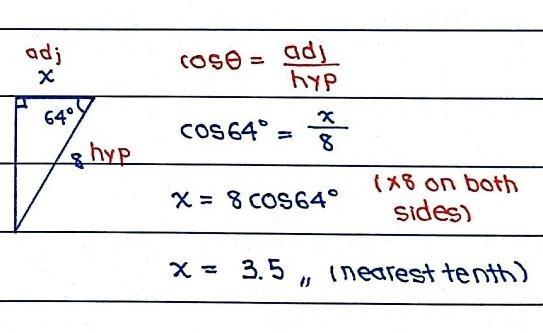 adj
x
64°
8 hyp
cosθ = adj/hyp
cos64° = x/8
x = 8cos64° (×8 on both sides)
x = 3.5 ,, (nearest tenth)